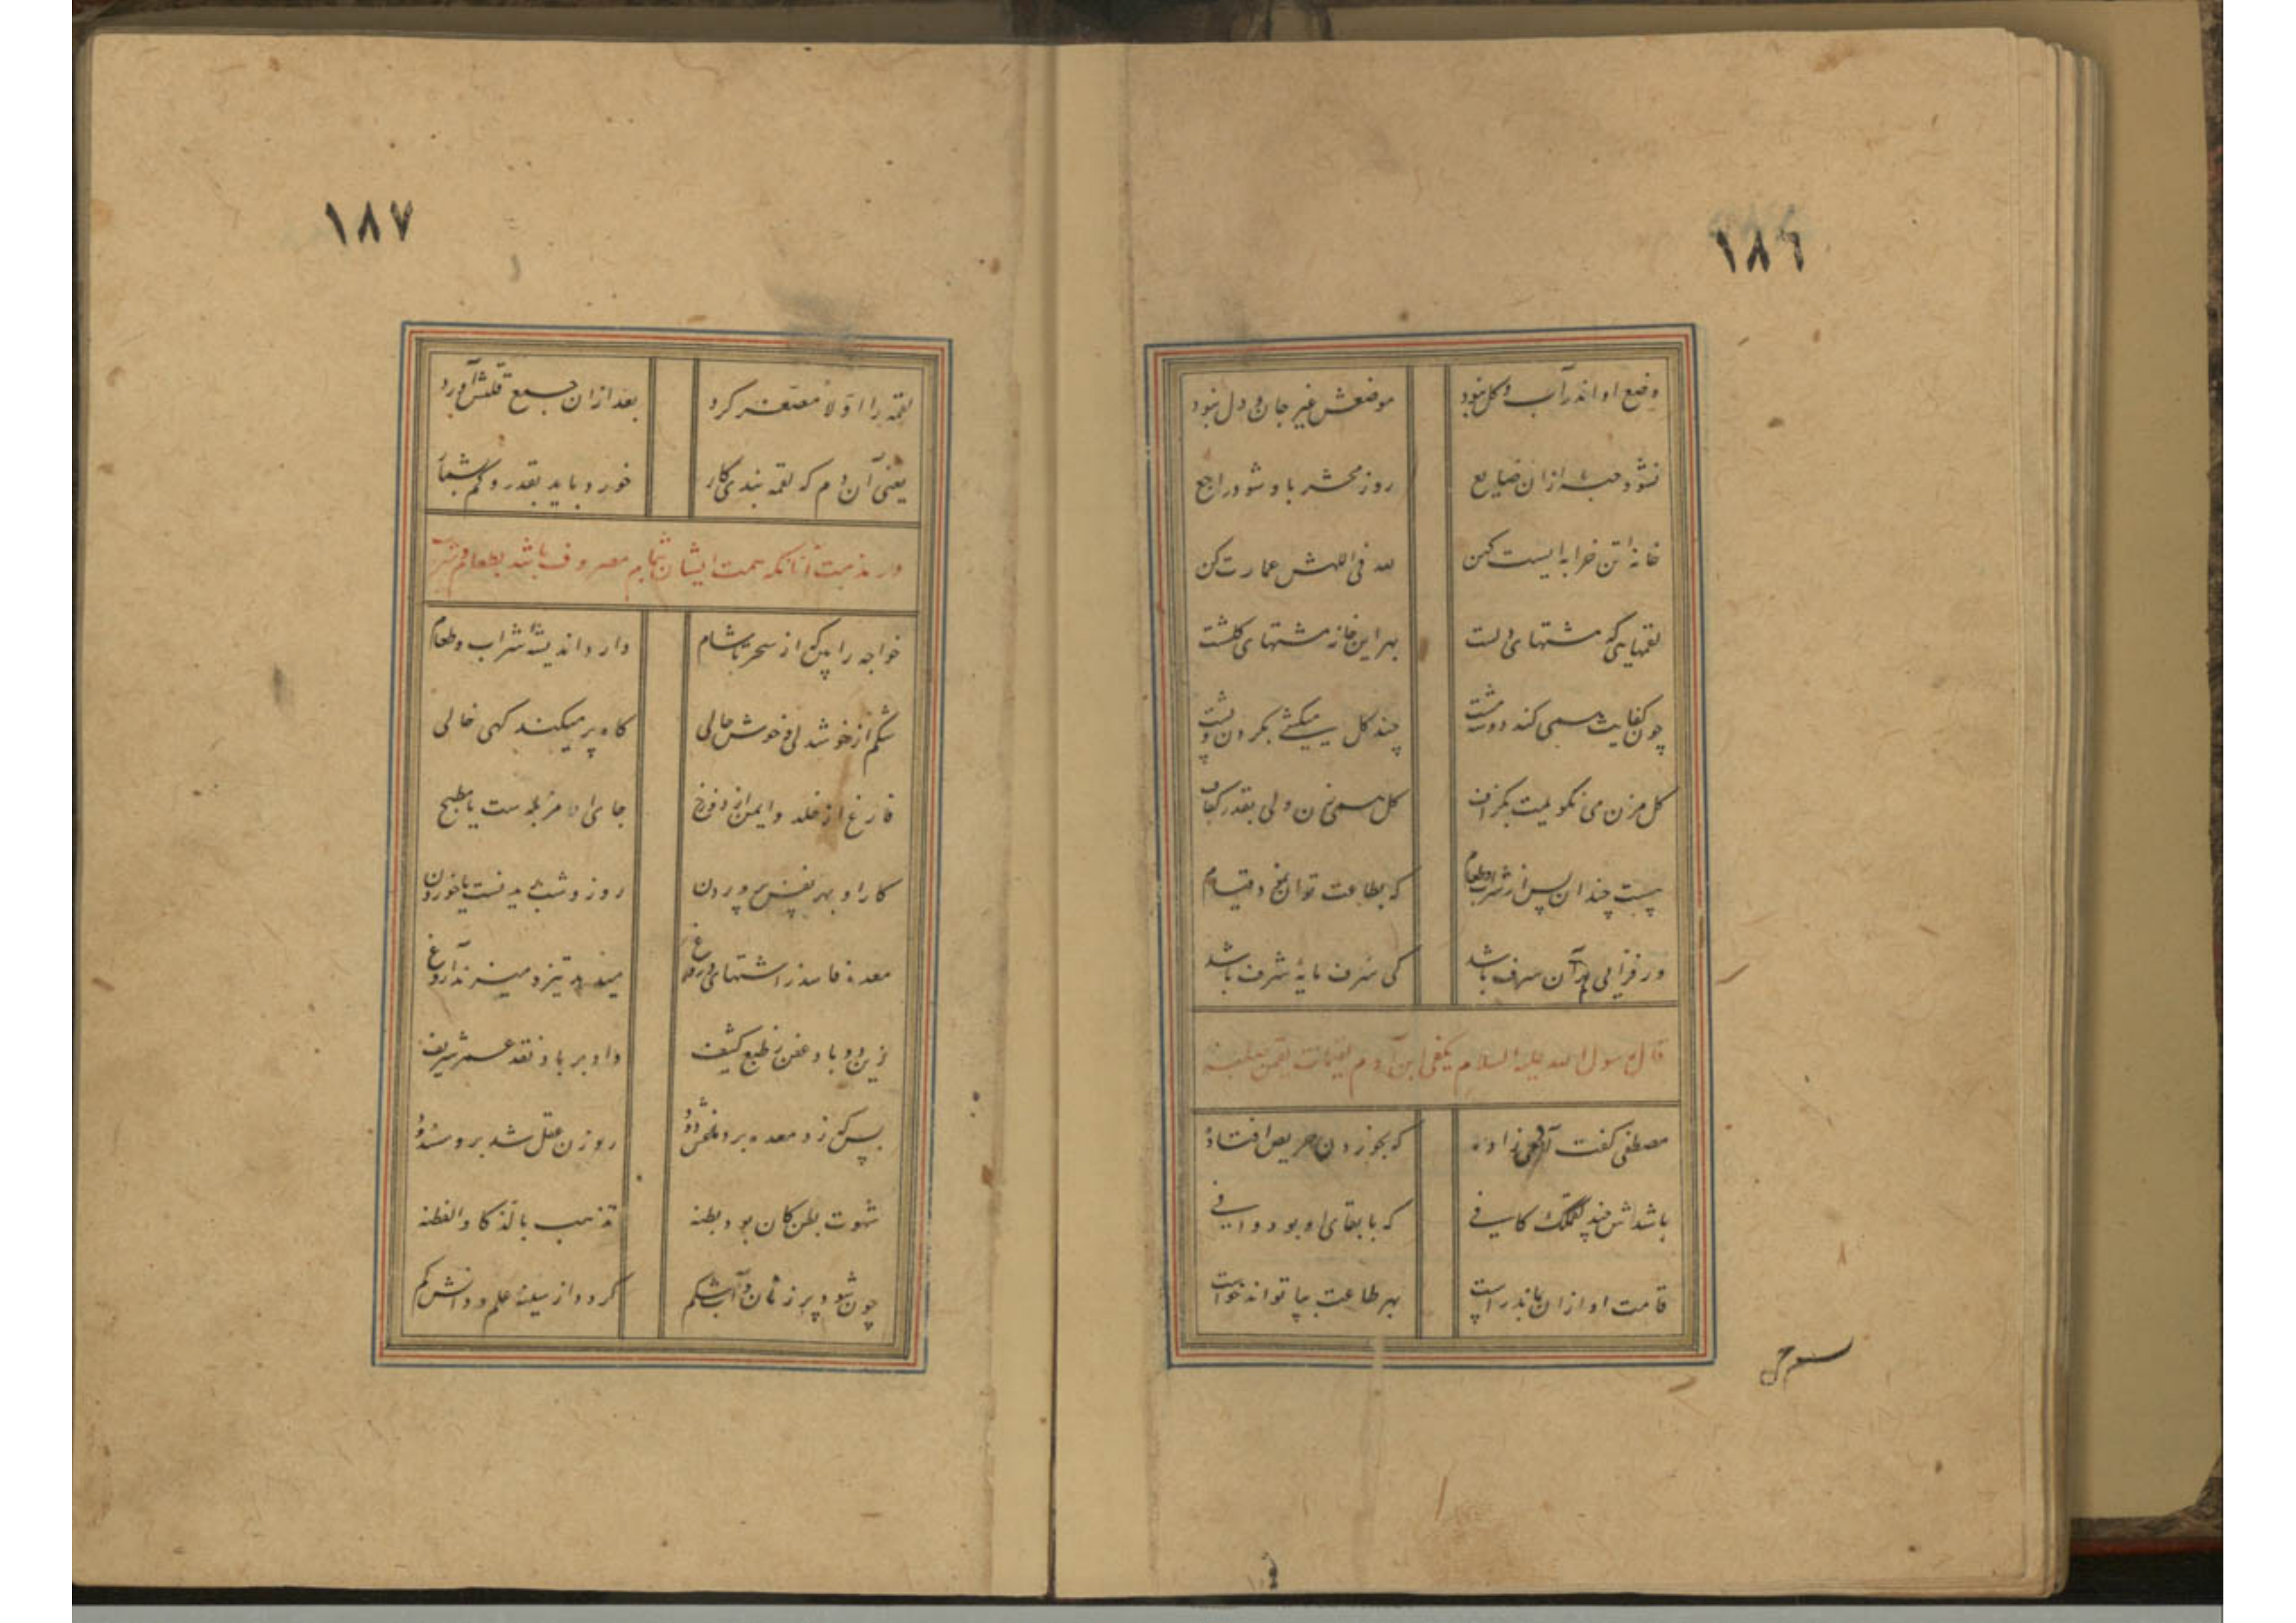 ١٨٦
وضع او اندر آب و گل نبود موضعش غیر جان و دل نبود
نشود حبه ازان ضایع روز محشر باو شود راجع
خانه تن خرابه ایست کهن لله فی الله عمارت کن
لقمهایی که مشتهای دلست بهر این خانه مشتهای گلست
چون کفایت همی کند دو سه مشت چند گل میکشی بگردن و پشت
گل مزن می نگویمت بگزاف گل همی زن ولی بقدر کفاف
پست چندان بس از شراب و طعام که بطاعت توان نمود قیام
ور فزایی بر آن سرف باشد کی سرف مایه شرف باشد
قال رسول الله علیه السلام یکفی ابن آدم لقیمات یقمن صلبه
مصطفی گفت آدمی زاده که بخوردن حریص افتاده
باشدش چند لقمگک کافی که بابقای او بود وافی
قامت او ازان بماند راست بهر طاعت بپا تواند خواست
١٨٧
لقمه را اولا مصغر کرد بعد ازان جمع قلتش آورد
یعنی آن دم که لقمه بندی کار خورد باید بقدر و کم بشمار
در مذمت آنانکه همت ایشان بتمام مصروف باشد بطعام و شراب
خواجه را بین که از سحر تا شام دارد اندیشه شراب و طعام
شکم از خوشدلی و خوش حالی گاه پر میکند گهی خالی
فارغ از خلد و ایمن از دوزخ جای او مزبله ست یا مطبخ
کار او بهر نفس پروردن روز و شب ریدنست یا خوردن
معده فاسد ز اشتهای دروغ میدهد تیز و میزند آروغ
زین دو باد عفن ز طبع کثیف داد بر باد نقد عمر شریف
بس که زد معده بر دماغش دود روزن عقل شد برو مسدود
شهوت بطن کان بود بطنه تذهب بالذکا والفطنه
چون شود پر ز نان و آب شکم گردد از سینه علم و دانش کم